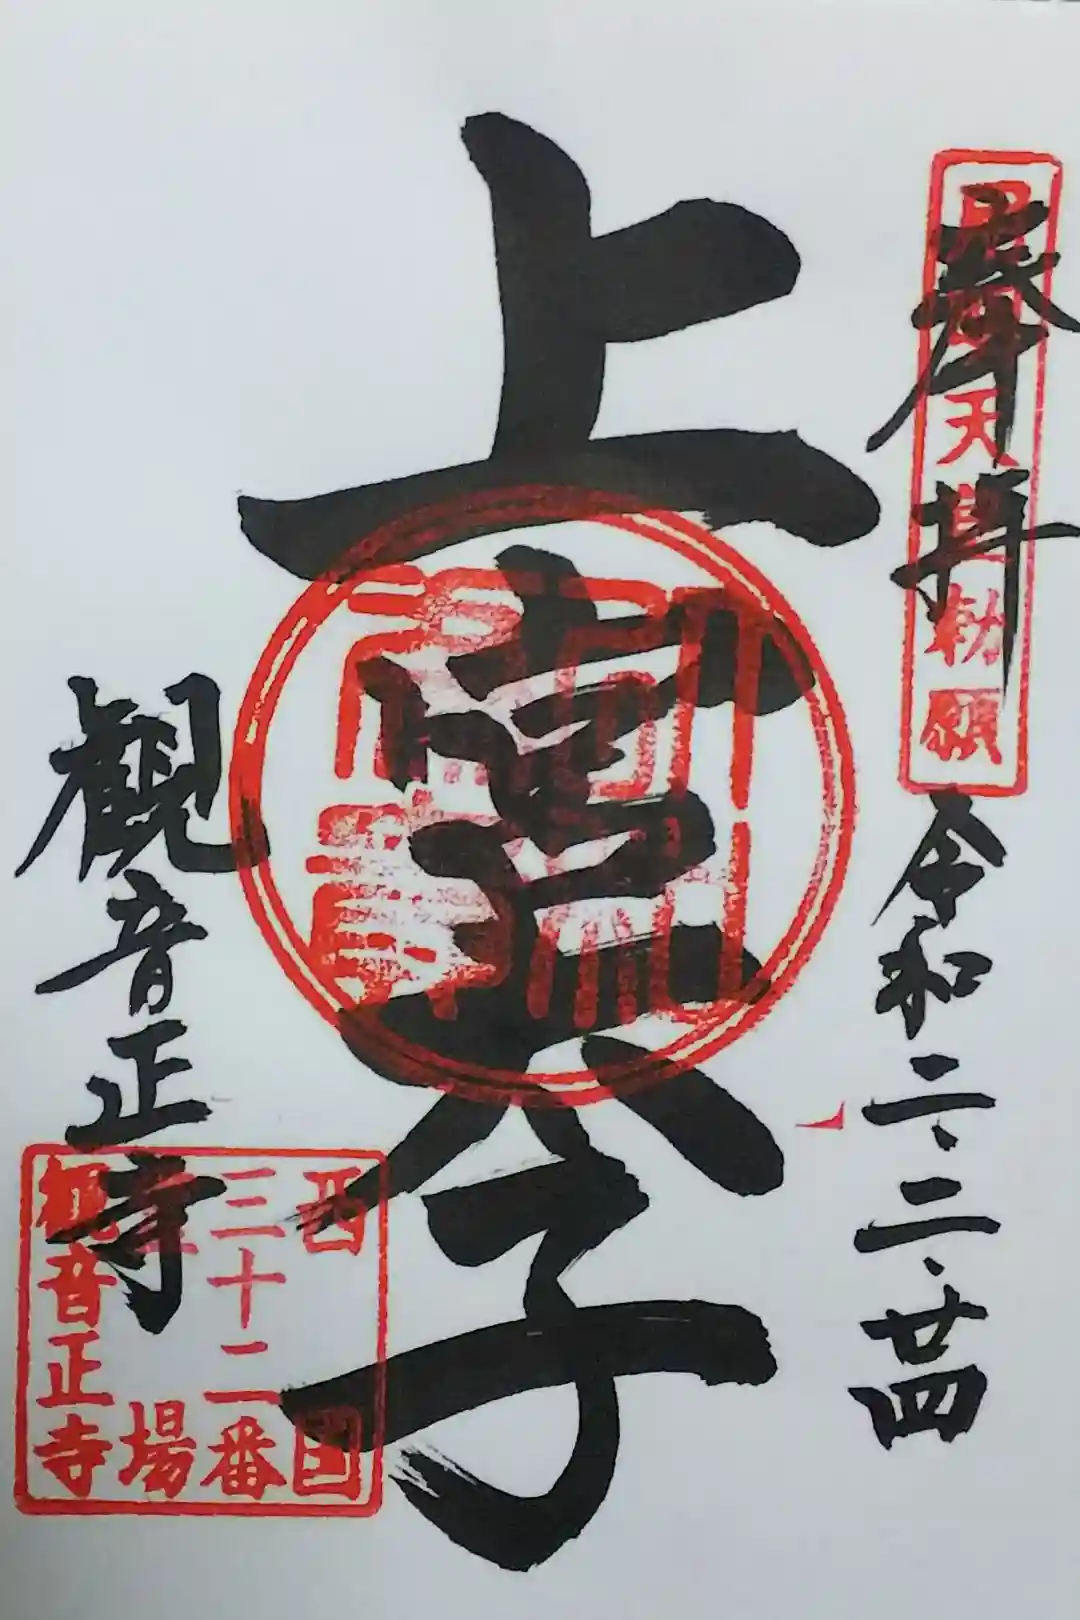 奉拝
用明天皇勅願
令和二、二、廿四
上宮太子
観音正寺
西国
三十二番
霊場
観音正寺